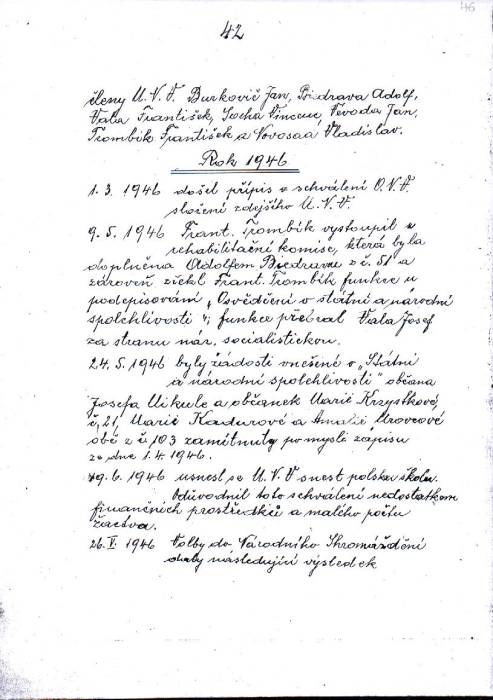 46
42
členy M.V.V. Burkovič Jan, Biedrava Adolf,
Vala František, Socha Vincenc, Vevoda Jan,
Trombik František a Novosad Vladislav.
Rok 1946
1.3. 1946 došel přípis o schválení O.N.V
složení zdejšího M.V.V
9.5. 1946 Frant. Trombik vystoupil z
rehabilitační komise, která byla
doplněna Adolfem Biedravou z č. 51 a
zároveň zřekl Frant. Trombik funkce u
podepisování „Osvědčení o státní a národní
spolehlivosti"; funkce převzal Vala Josef
za stranu nár. socialistickou.
24.5. 1946 byly žádosti vnešené o „Státní
a národní spolehlivosti" občana
Josefa Mikule a občanek Marie Krzystkové,
č. 21, Marie Kadurové a Amalie
obě z č. 103 zamítnuty po mysli zápisu
ze dne 1.4. 1946.
19.6. 1946 usnesl se M.V.V snest polskou školu.
Odůvodnil toto schválení nedostatkem
finančních prostředků a malého počtu
žactva.
26.V. 1946 Volby do Národního Shromáždění
daly následující výsledek